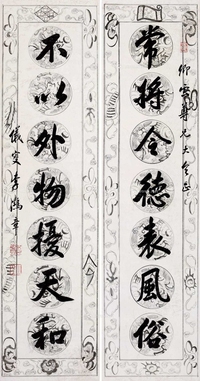 仰宸尊兄大人正
常將令德表風俗
不以外物擾天和
儀叟李鴻章